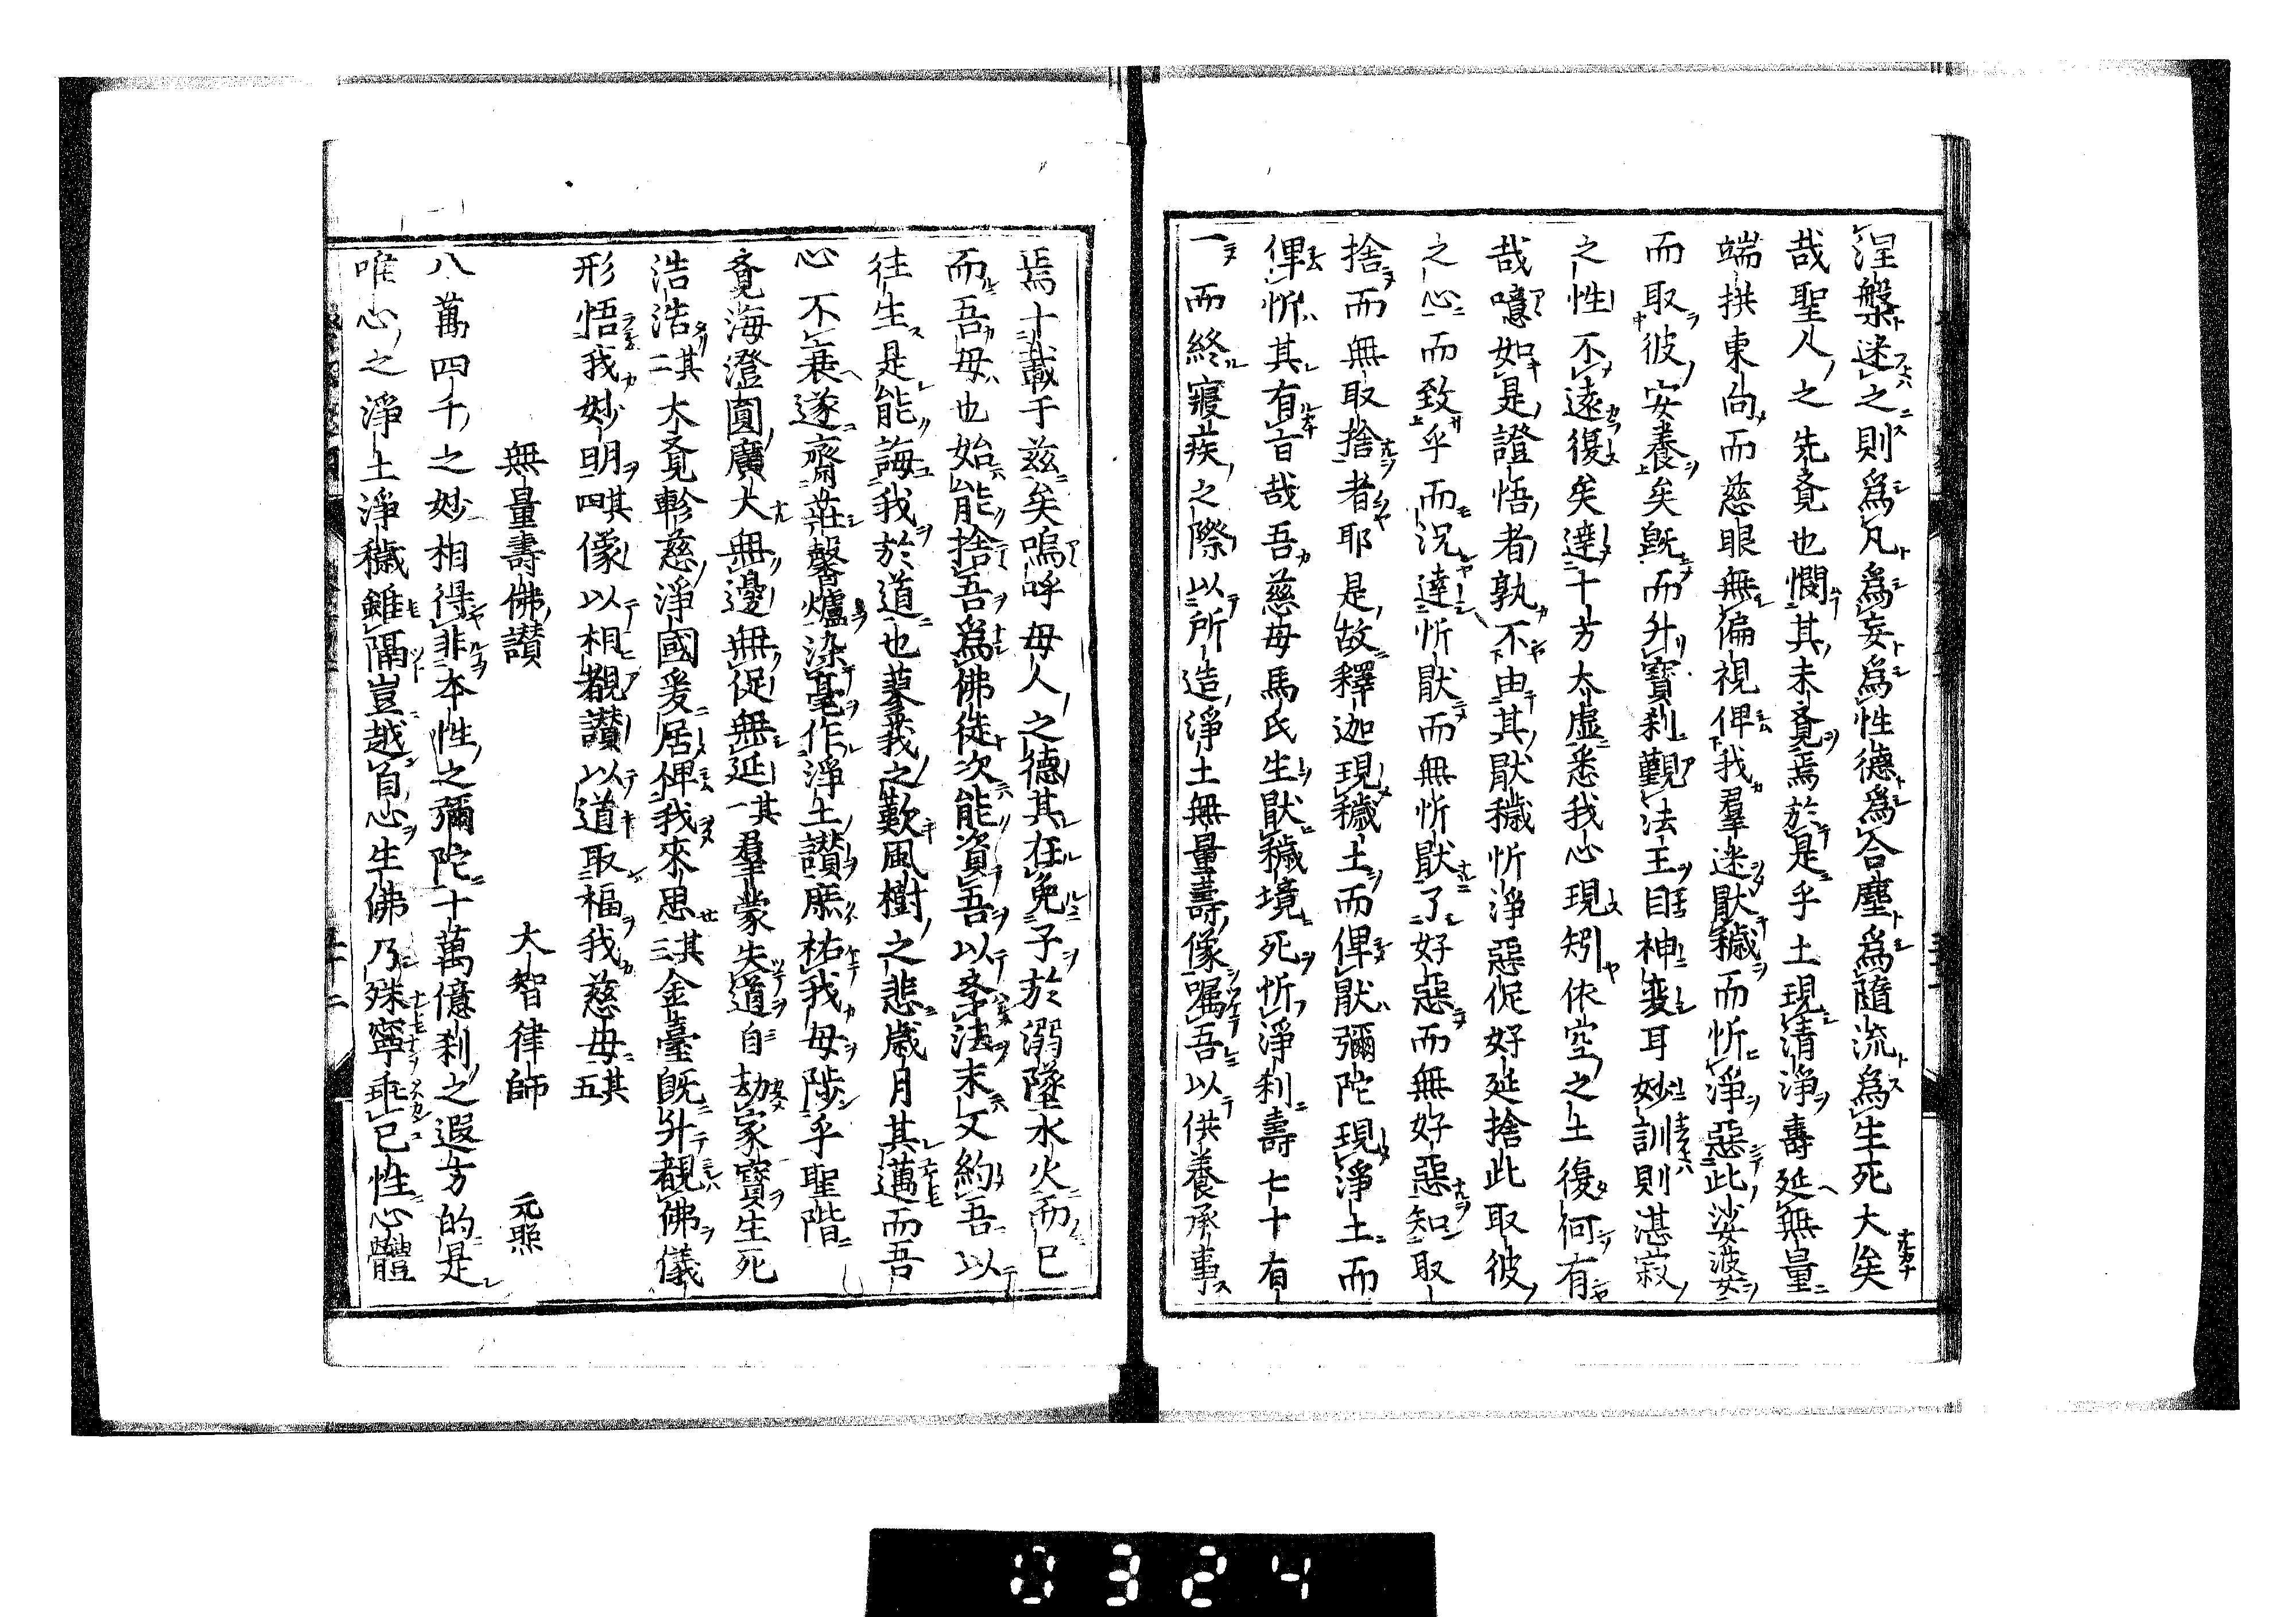 涅槃迷之則爲凡爲妄爲性德爲合塵爲隨流爲生死大矣
哉聖人之先覔也憫其未覔焉於是乎土現清淨壽延無量
端拱東向而慈眼無偏視俾我羣迷厭穢而忻淨惡此娑婆
而取彼安養矣旣而升寶刹覲法王目神變耳妙訓則湛寂
之性不遠復矣達十方太虛悉我心現矧依空之土復何有
哉噫如是證悟者孰不由其厭穢忻淨惡促好延捨此取彼
之心而致乎而況達忻厭而無忻厭了好惡而無好惡知取
捨而無取捨者耶是故釋迦現穢土而俾厭彌陀現淨土而
俾忻其有旨哉吾慈母馬氏生厭穢境死忻淨刹壽七十有
一而終寢疾之際以所造淨土無量壽像嘱吾以供養承事
焉十載于茲矣嗚呼母人之德其在免子於溺墜水火而已
而吾母也始能捨吾爲佛徒次能資吾以學法末又約吾以
往生是能誨我於道也蓼莪之歎風樹之悲歲月其邁而吾
心不衰遂齋莊馨爐染毫作淨土讃庶祐我母陟乎聖階
覔海澄圓廣大無邊無促無延其一羣蒙失道自劫家寶生死
浩浩其二大覔軫慈淨國爰居俾我來思其三金臺旣升覩佛儀
形悟我妙明其四像以相覩讃以道取福我慈母其五
無量壽佛讃
大智律師 元照
八萬四千之妙相得非本性之彌陀十萬億刹之遐方的是
唯心之淨土淨穢雖隔豈越自心生佛乃殊寧乖已性心體
0324